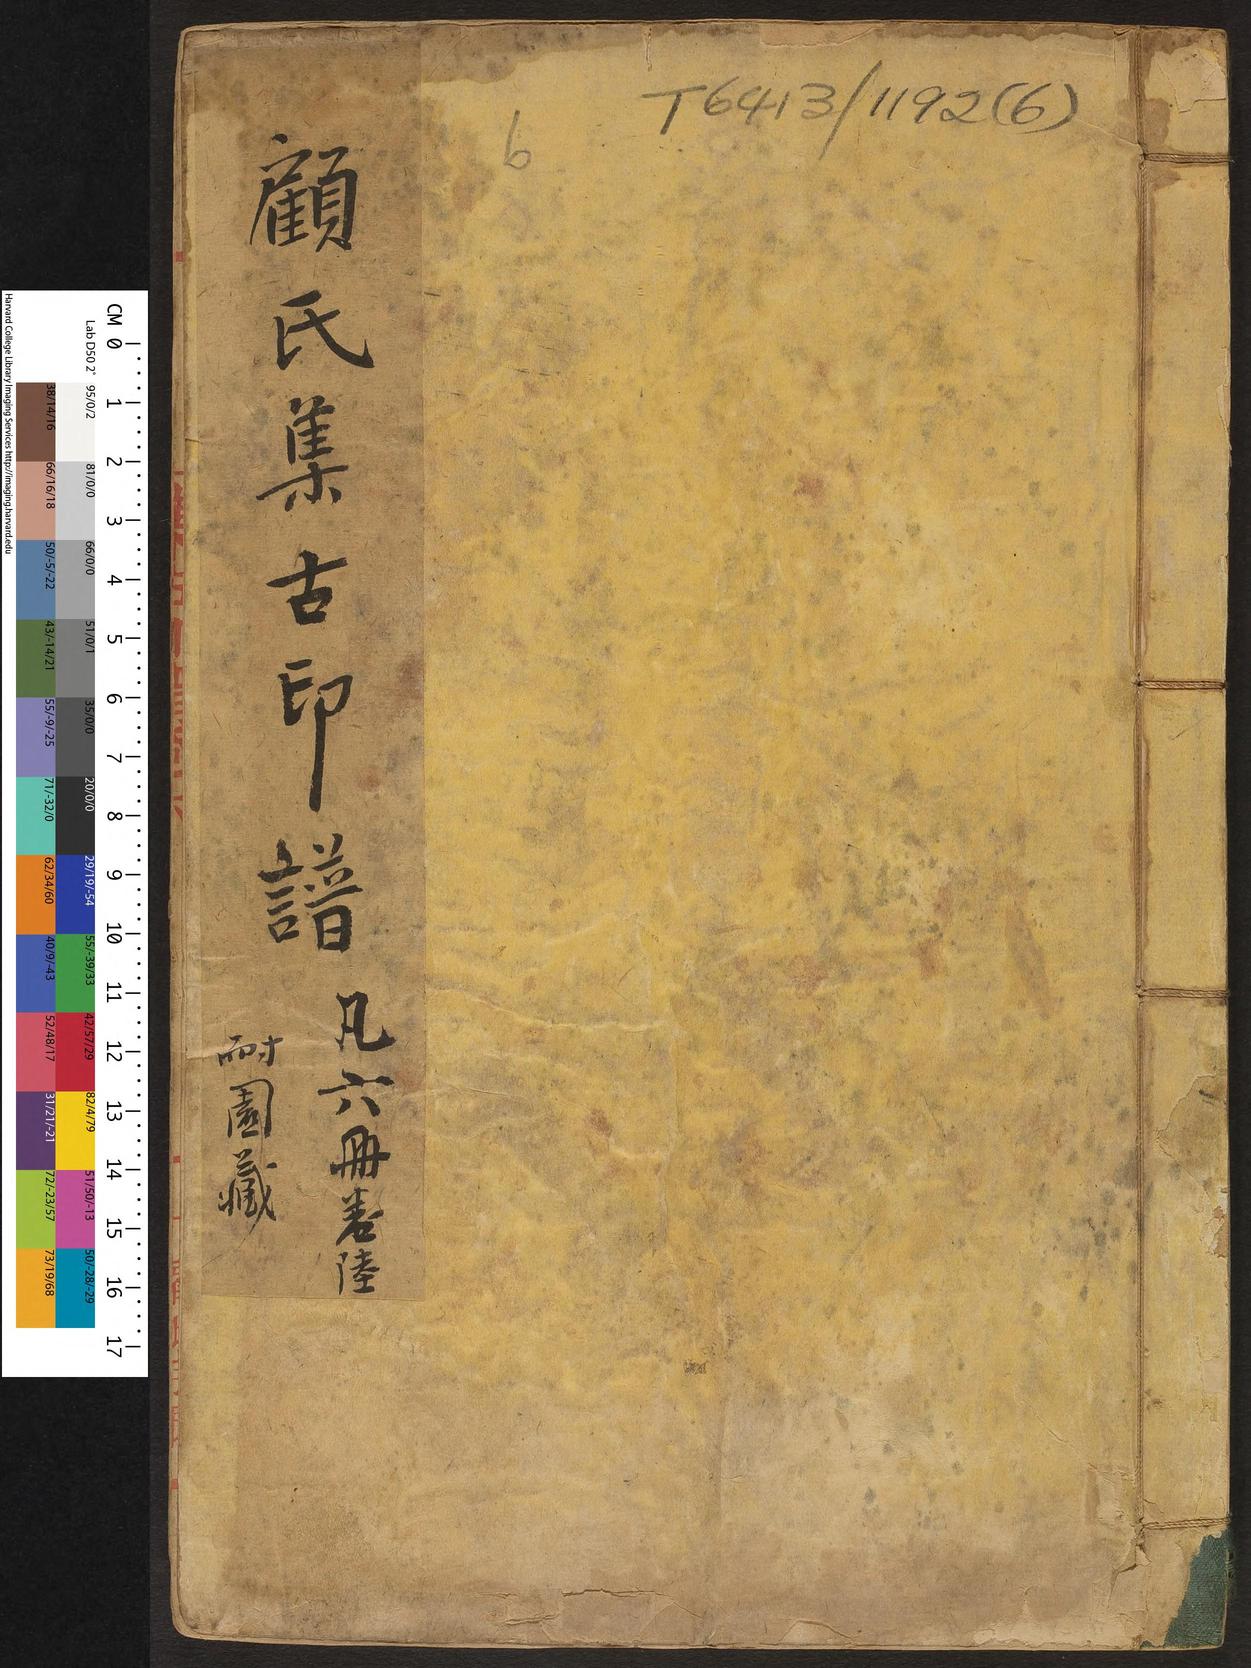 T6413/1192(6)
6
顧氏集古印譜
凡六冊卷陸
耐園藏
CM 0 1 2 3 4 5 6 7 8 9 10 11 12 13 14 15 16 17
Lab D50 2° 95/0/2 81/0/0 66/0/0 51/0/1 35/0/0 20/0/0 29/19/-54 55/-39/33 42/57/29 82/4/79 51/50/-13 50/-28/-29
38/14/16 66/16/18 50/-5/-22 43/-14/21 55/-9/-25 71/-32/0 62/34/60 40/9/-43 52/48/17 31/21/-21 72/-23/57 73/19/68
Harvard College Library Imaging Services http://imaging.harvard.edu